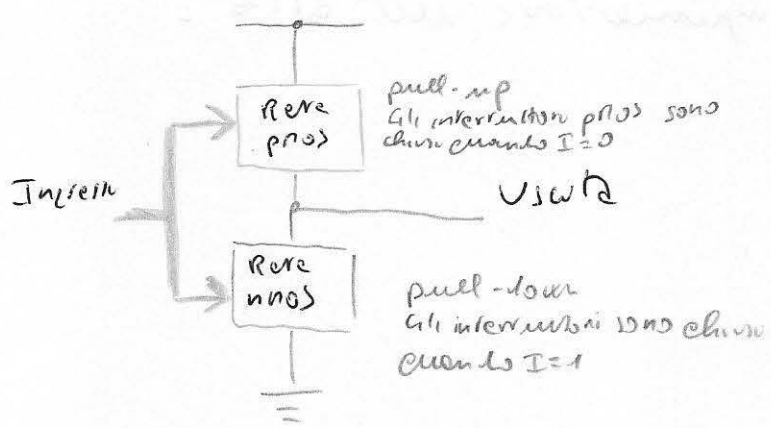 Rete
pMOS
pull-up
Gli interruttori pMOS sono
chiusi quando I=0
Ingressi
Uscita
Rete
nMOS
pull-down
Gli interruttori sono chiusi
quando I=1